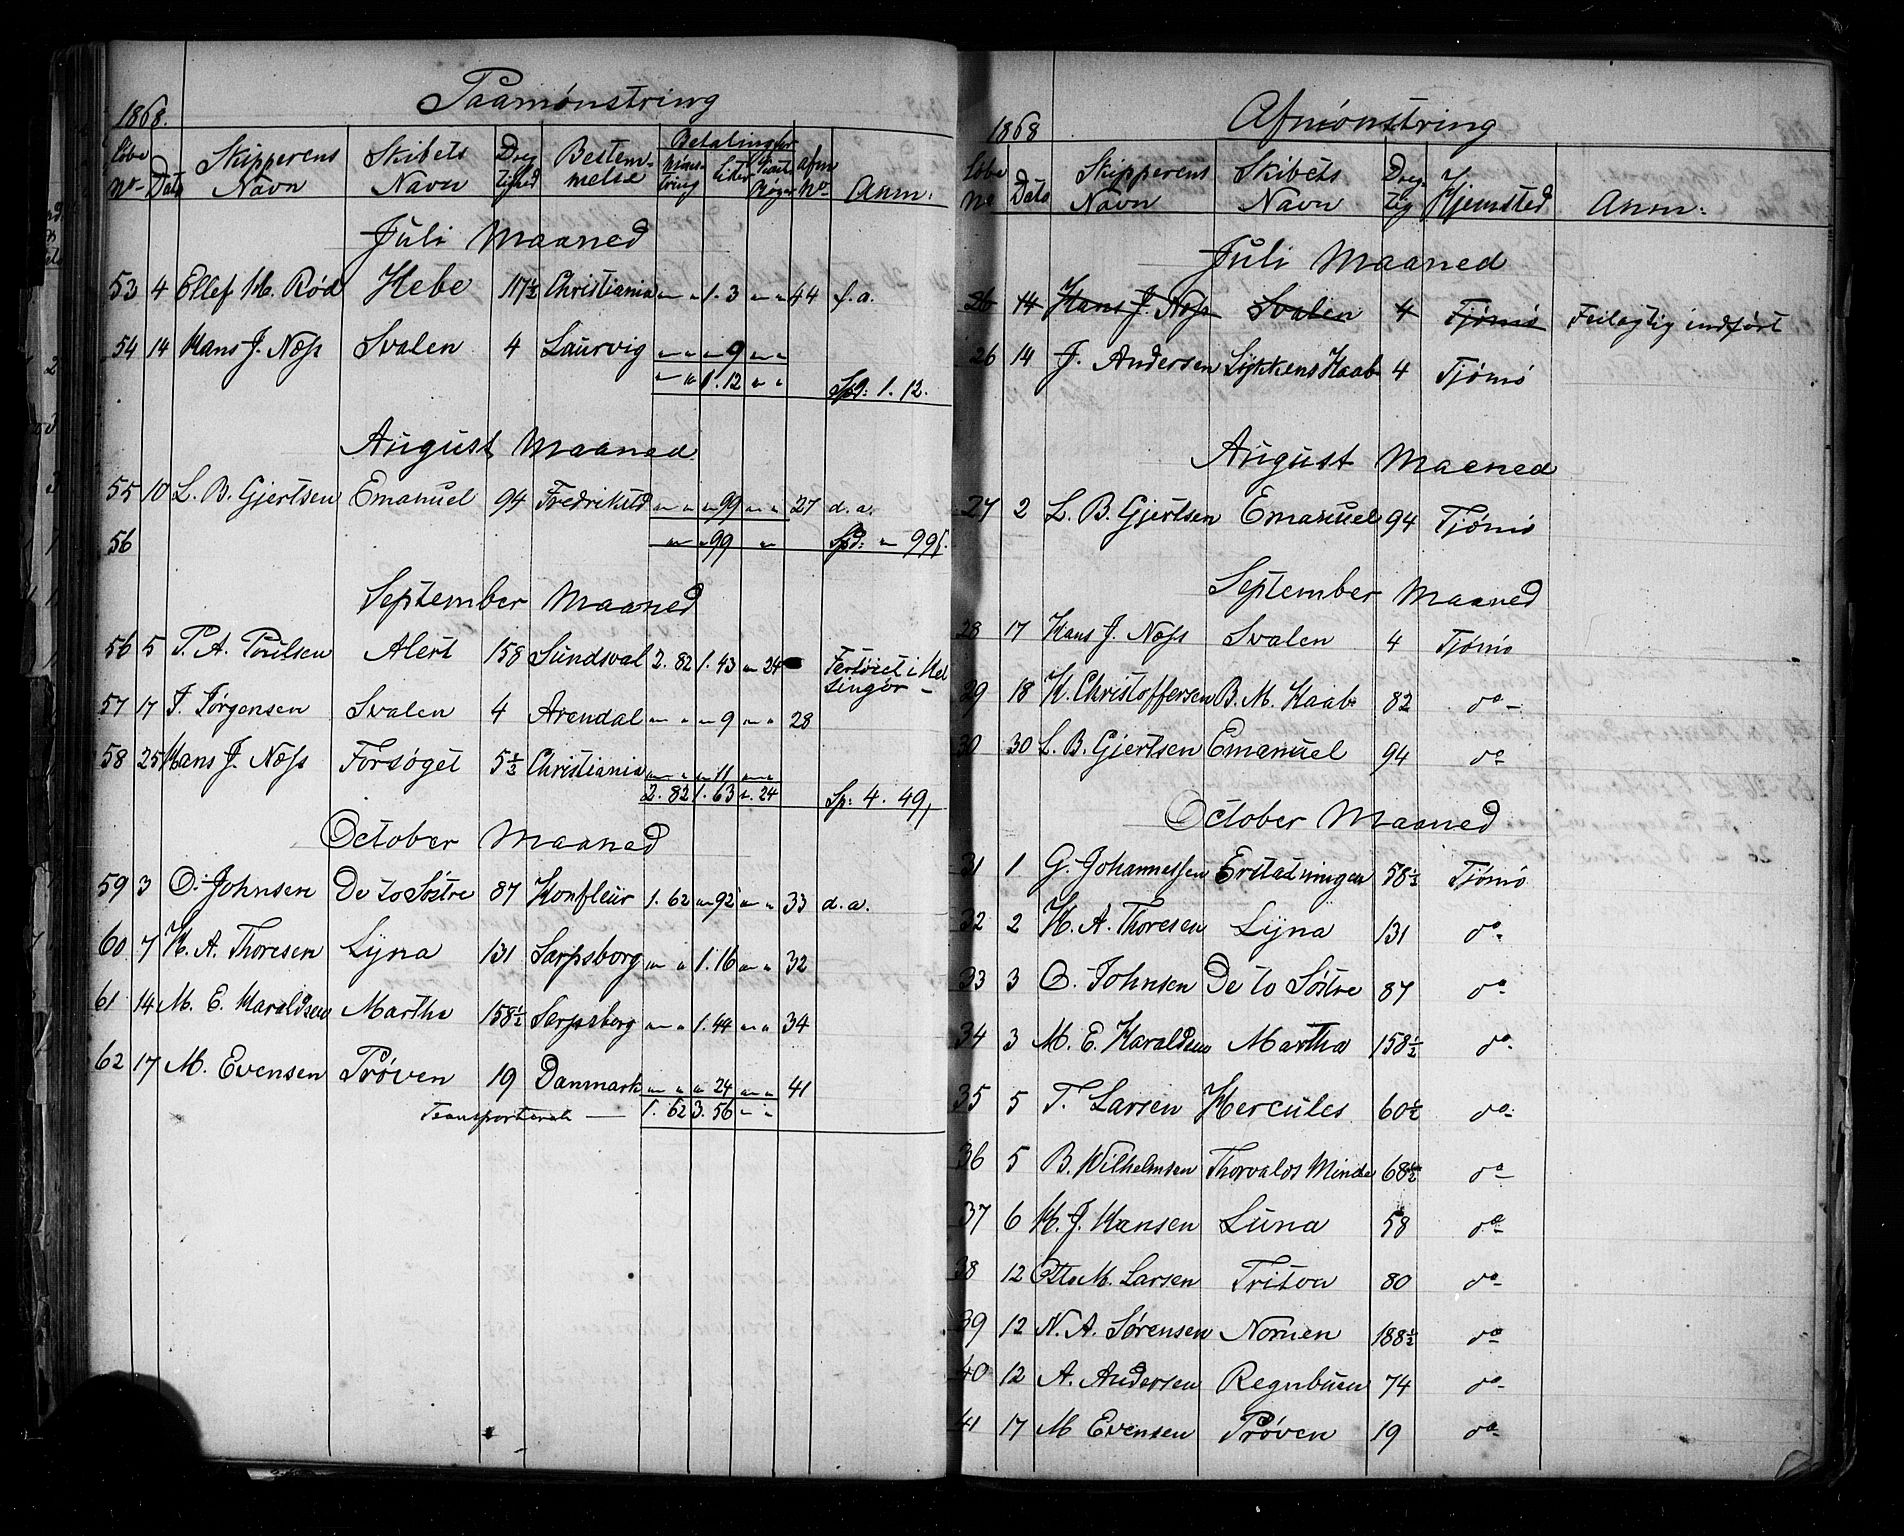 1868. Paamønstring
Løbe No. Dato Skipperens Navn Skibets Navn Dreg tighed Bestem- melse Betaling for Mønstring afm No. Anm:
Juli Maaned
53 4 Ellef M. Rød Hebe 17½ Christiania " " 1. 3 " " 44 d. a.
54 14 Hans J. Næss Svalen 4 Laurvig " " " 9 " "
" " 1. 12 " " Spd: 1. 12.
August Maaned
55 10 L. B. Gjertsen Emanuel 94 Fredrikstd " " " 99 " " 27 d. a.
56 " " 99 " Spd: " 99
September Maaned
56 5 P. A. Poulsen Alert 158 Sundsval 2. 82 1. 43 " 24 Forhøiet i Hel
singør -
57 17 J. Jørgensen Svalen 4 Arendal " " " 9 " " 28
58 25 Hans J. Næss Forsøget 5½ Christiania " " " 11 " "
2. 82 1. 63 " 24 Sp: 4. 49,
October Maaned
59 3 O. Johnsen De to Søstre 87 Honfleur 1. 62 " 92 " " 33 d. a.
60 7 H. A. Thoresen Lyna 131 Sarpsborg " " 1. 16 " " 32
61 14 M. E. Haraldsen Martha 158½ Sarpsborg " " 1. 44 " " 34
62 17 M. Evensen Prøven 19 Danmark " " " 24 " " 41
Transporterede — 1. 62 3. 56 " "
1868 Afmønstring
Løbe No Dato Skipperens Navn Skibets Navn Dreg tig Hjemsted Anm:
Juli Maaned
26 14 Hans J. Næss Svalen 4 Tjømø Feilagtig indført
26 14 J. Andersen Lykkens Haab 4 Tjømø
August Maaned
27 2 L. B. Gjertsen Emanuel 94 Tjømø
September Maaned
28 17 Hans J. Næss Svalen 4 Tjømø
29 18 H. Christoffersen B. M. Haab 82 do-
30 30 L. B. Gjertsen Emanuel 94 do
October Maaned
31 1 G. Johannessen Erstatningen 58½ Tjømø
32 2 H. A. Thoresen Lyna 131 do-
33 3 O. Johnsen De to Søstre 87 do
34 3 M. E. Haraldsen Martha 158½ do-
35 5 T. Larsen Hercules 60½ do-
36 5 B. Wilhelmsen Thorvalds Minde 68½ do-
37 6 H. J. Hansen Luna 58 do-
38 12 Otto M. Larsen Triton 80 do-
39 12 N. A. Sørensen Nornen 188½ do-
40 12 A. Andersen Regnbuen 74 do-
41 17 M Evensen Prøven 19 do-